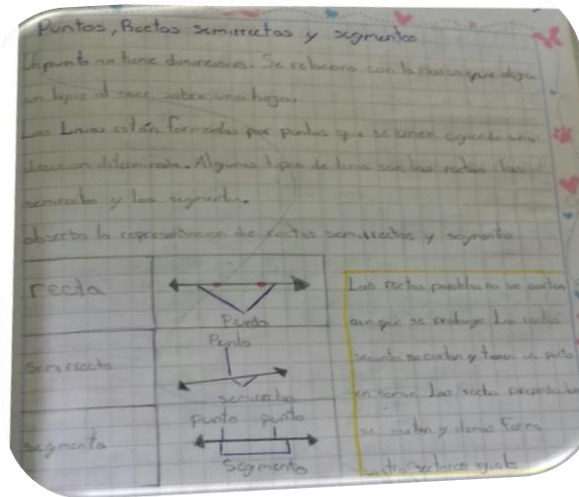 Puntos, Rectas semirrectas y segmentos
Un punto no tiene dimensiones. Se relaciona con la marca que deja
un lapiz al sobre una hoja.
Las Lineas están formadas por puntos que se unen siguiendo una
determinada. Algunos tipos de linea son las rectas las
semirrectas y los segmentos.
la representacion de rectas semirrectas y segmento
recta
Punto
semirrecta
Punto
semirrectas
segmento
punto punto
Segmento
Las rectas no se cortan
aunque se Las rectas
se cortan y tienen un punto
en comun Las rectas
se cortan y forma